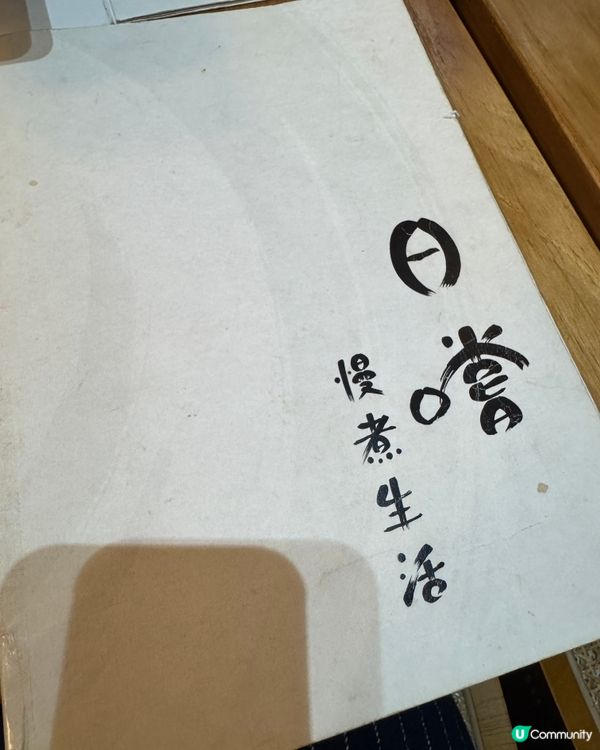 日嚐
慢煮生活
U Community